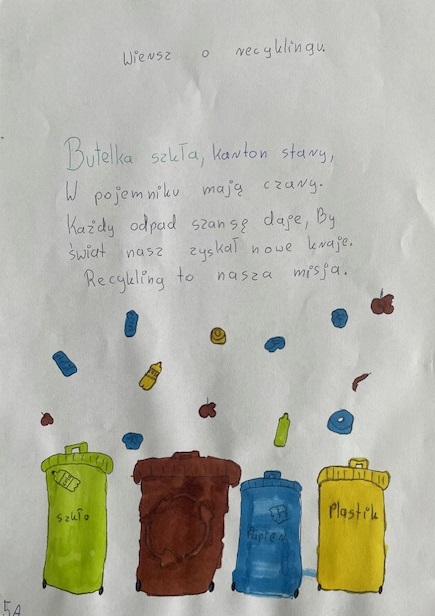 Wiersz o recyklingu.
Butelka szkła, karton stary,
W pojemniku mają czary.
Każdy odpad szansę daje, By
świat nasz zyskał nowe kraje.
Recykling to nasza misja.
szkło
Papier
Plastik
5A